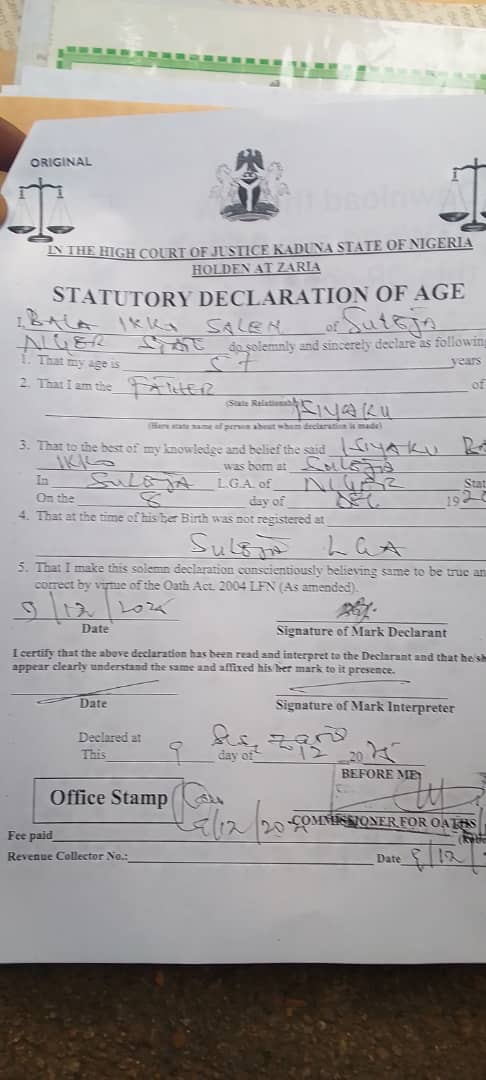 ORIGINAL
IN THE HIGH COURT OF JUSTICE KADUNA STATE OF NIGERIA
HOLDEN AT ZARIA
STATUTORY DECLARATION OF AGE
I, BALA IKKO SALEH of SULEJA
NIGER STATE do solemnly and sincerely declare as following
1. That my age is 57 years
2. That I am the FATHER of
(State Relationship) ISIYAKU
(Here state name of person about whom declaration is made)
3. That to the best of my knowledge and belief the said ISIYAKU BA
IKKO was born at SULEJA
In SULEJA L.G.A. of NIGER Stat
On the 8 day of DEC 1920
4. That at the time of his/her Birth was not registered at
SULEJA LGA
5. That I make this solemn declaration conscientiously believing same to be true an
correct by virtue of the Oath Act. 2004 LFN (As amended).
9/12/2025
Date Signature of Mark Declarant
I certify that the above declaration has been read and interpret to the Declarant and that he/sh
appear clearly understand the same and affixed his/her mark to it presence.
Date Signature of Mark Interpreter
Declared at Zaria
This 9 day of 12 2025
BEFORE ME
Office Stamp
9/12/2025 COMMISSIONER FOR OATHS
Fee paid
Revenue Collector No.: Date 9/12/